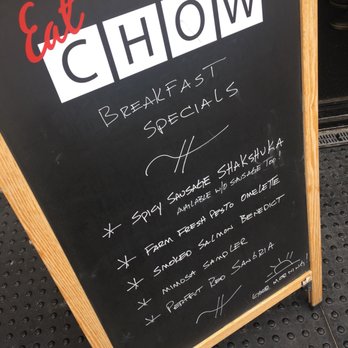 Eat
CHOW
BREAKFAST
SPECIALS
* SPICY SAUSAGE SHAKSHUKA
AVAILABLE W/O SAUSAGE TOO!
* FARM FRESH PESTO OMELETTE
* SMOKED SALMON BENEDICT
* MIMOSA SAMPLER
* PERFECT RED SANGRIA
GOOD MORNING!